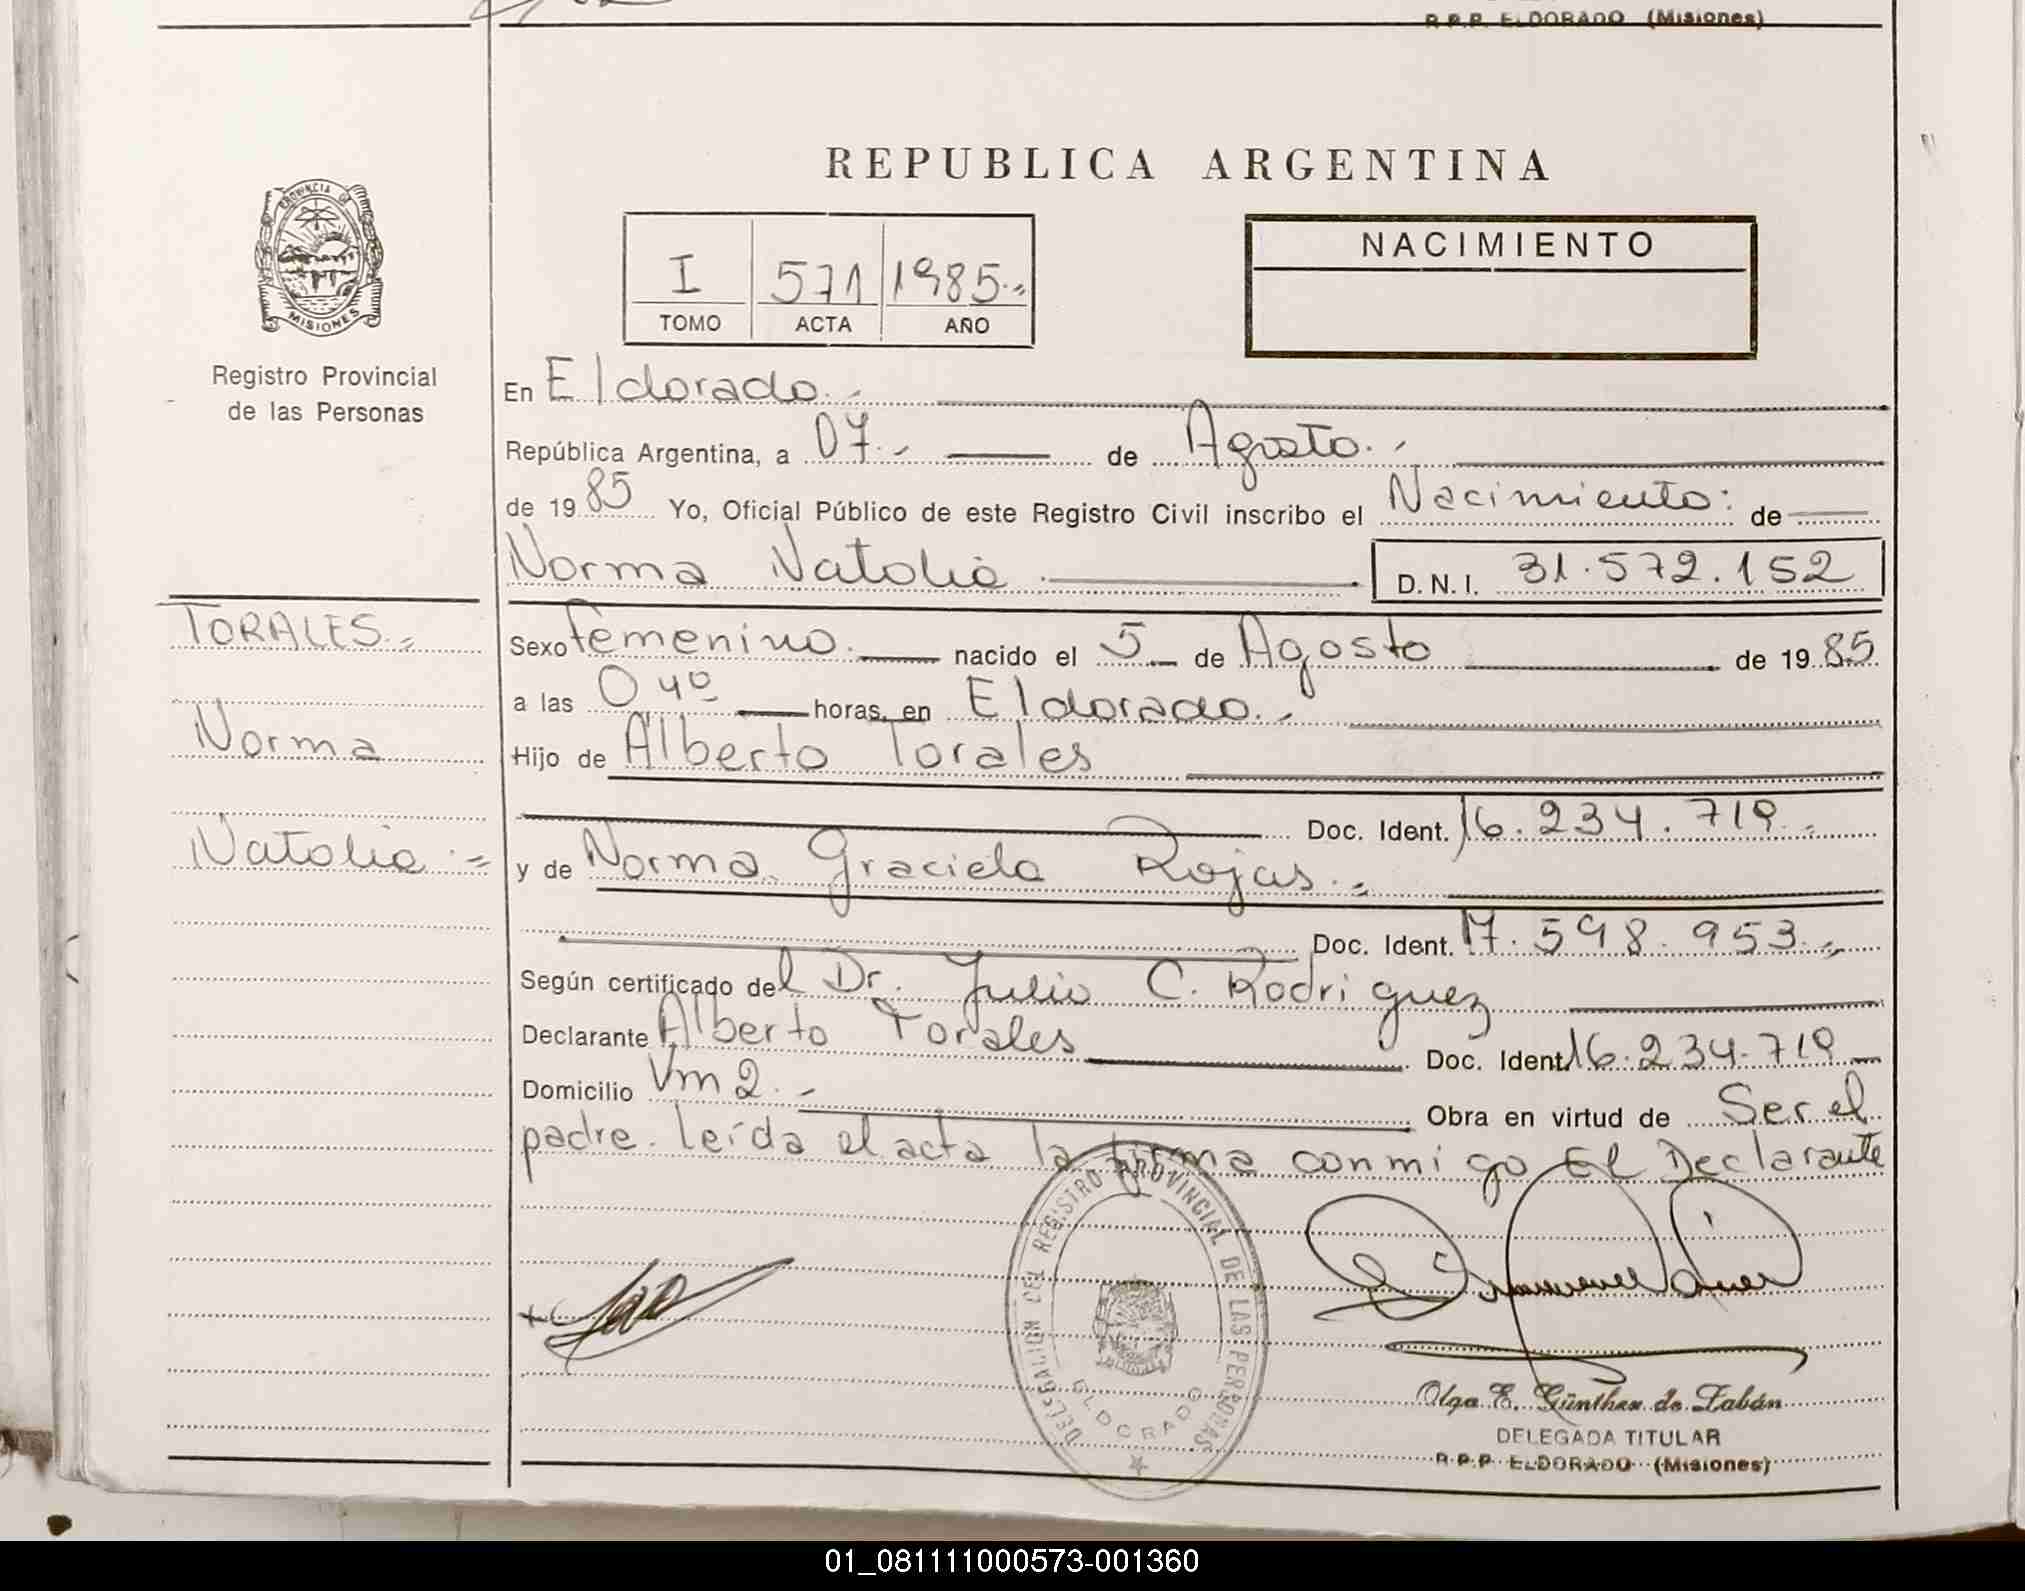 R.P.P. ELDORADO (Misiones)
REPUBLICA ARGENTINA
PROVINCIA DE
MISIONES
Registro Provincial
de las Personas
I 571 1985.-
TOMO ACTA AÑO
NACIMIENTO
En Eldorado.-
República Argentina, a 07.- de Agosto.-
de 1985 Yo, Oficial Público de este Registro Civil inscribo el Nacimiento: de
Norma Natalia D.N.I. 31.572.152
TORALES.=
Norma
Natalia.=
Sexo femenino. nacido el 5 de Agosto de 1985
a las 0 40 horas, en Eldorado.-
Hijo de Alberto Torales
Doc. Ident. 16.234.719.-
y de Norma Graciela Rojas.-
Doc. Ident. 17.598.953.-
Según certificado del Dr. Julio C. Rodriguez
Declarante Alberto Torales Doc. Ident. 16.234.719
Domicilio Vm 2.- Obra en virtud de Ser el
padre. leída el acta la firma conmigo El Declarante
DELEGACION DEL REGISTRO PROVINCIAL DE LAS PERSONAS
ELDORADO
Olga E. Günther de Zabán
DELEGADA TITULAR
R.P.P. ELDORADO (Misiones)
01_081111000573-001360